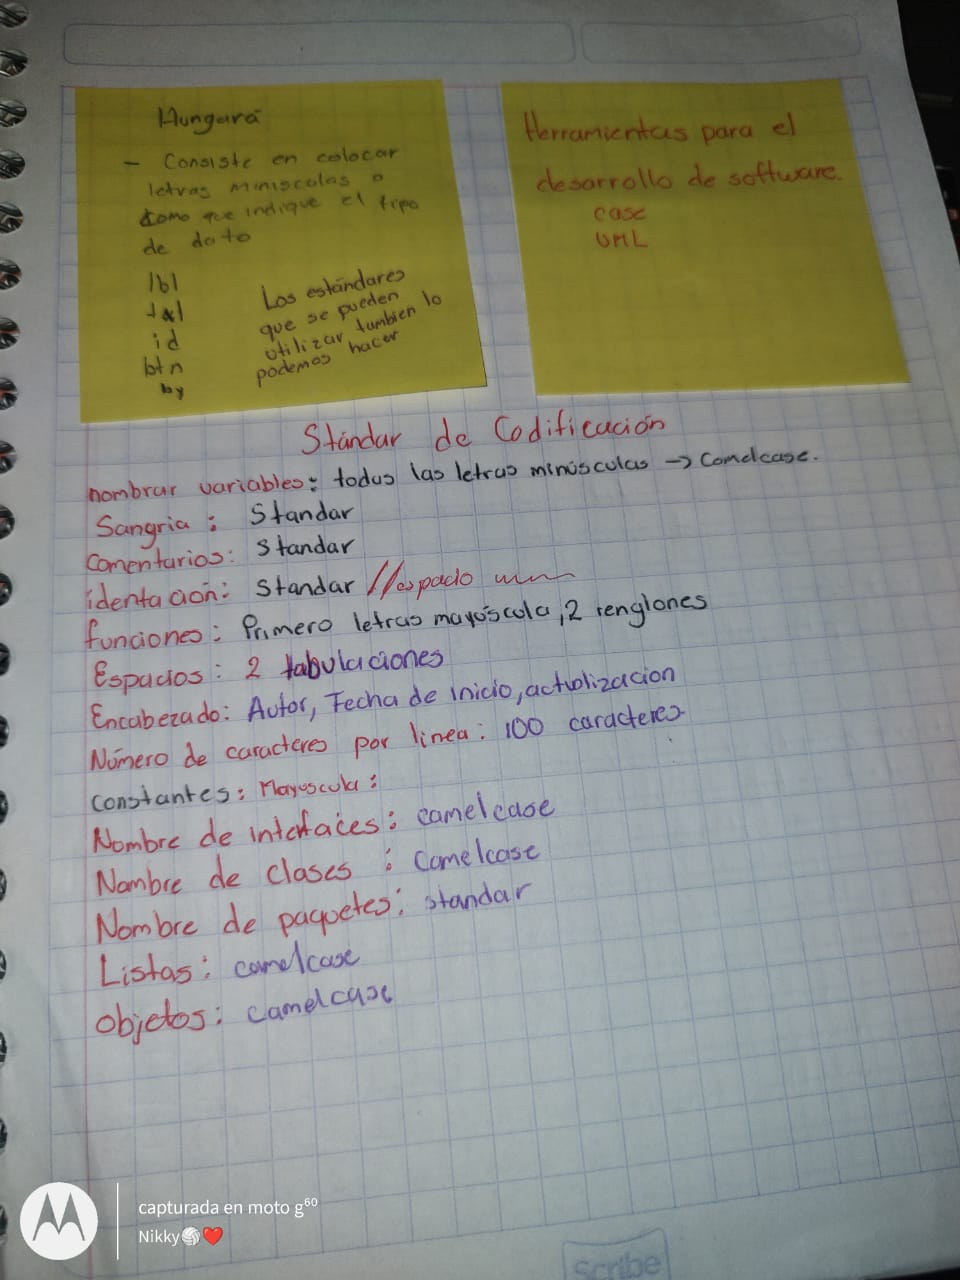 Hungara
- Consiste en colocar
letras miniscolas o
como que indique el tipo
de dato
lbl
txt
id
btn
by
Los estándares
que se pueden
utilizar tambien lo
podemos hacer
Herramientas para el
desarrollo de software.
case
UML
Stándar de Codificación
nombrar variables: todas las letras minúsculas -> Camelcase.
Sangria : Standar
Comentarios: Standar
identación: Standar //espacio
funciones: Primero letras mayúscula, 2 renglones
Espacios: 2 tabulaciones
Encabezado: Autor, Fecha de inicio, actulizacion
Número de caracteres por linea: 100 caracteres
Constantes: Mayuscula:
Nombre de interfaces: camelcase
Nombre de clases : Camelcase
Nombre de paquetes: standar
Listas: camelcase
Objetos: camelcase
capturada en moto g⁶⁰
Nikky🏐❤️
scribe